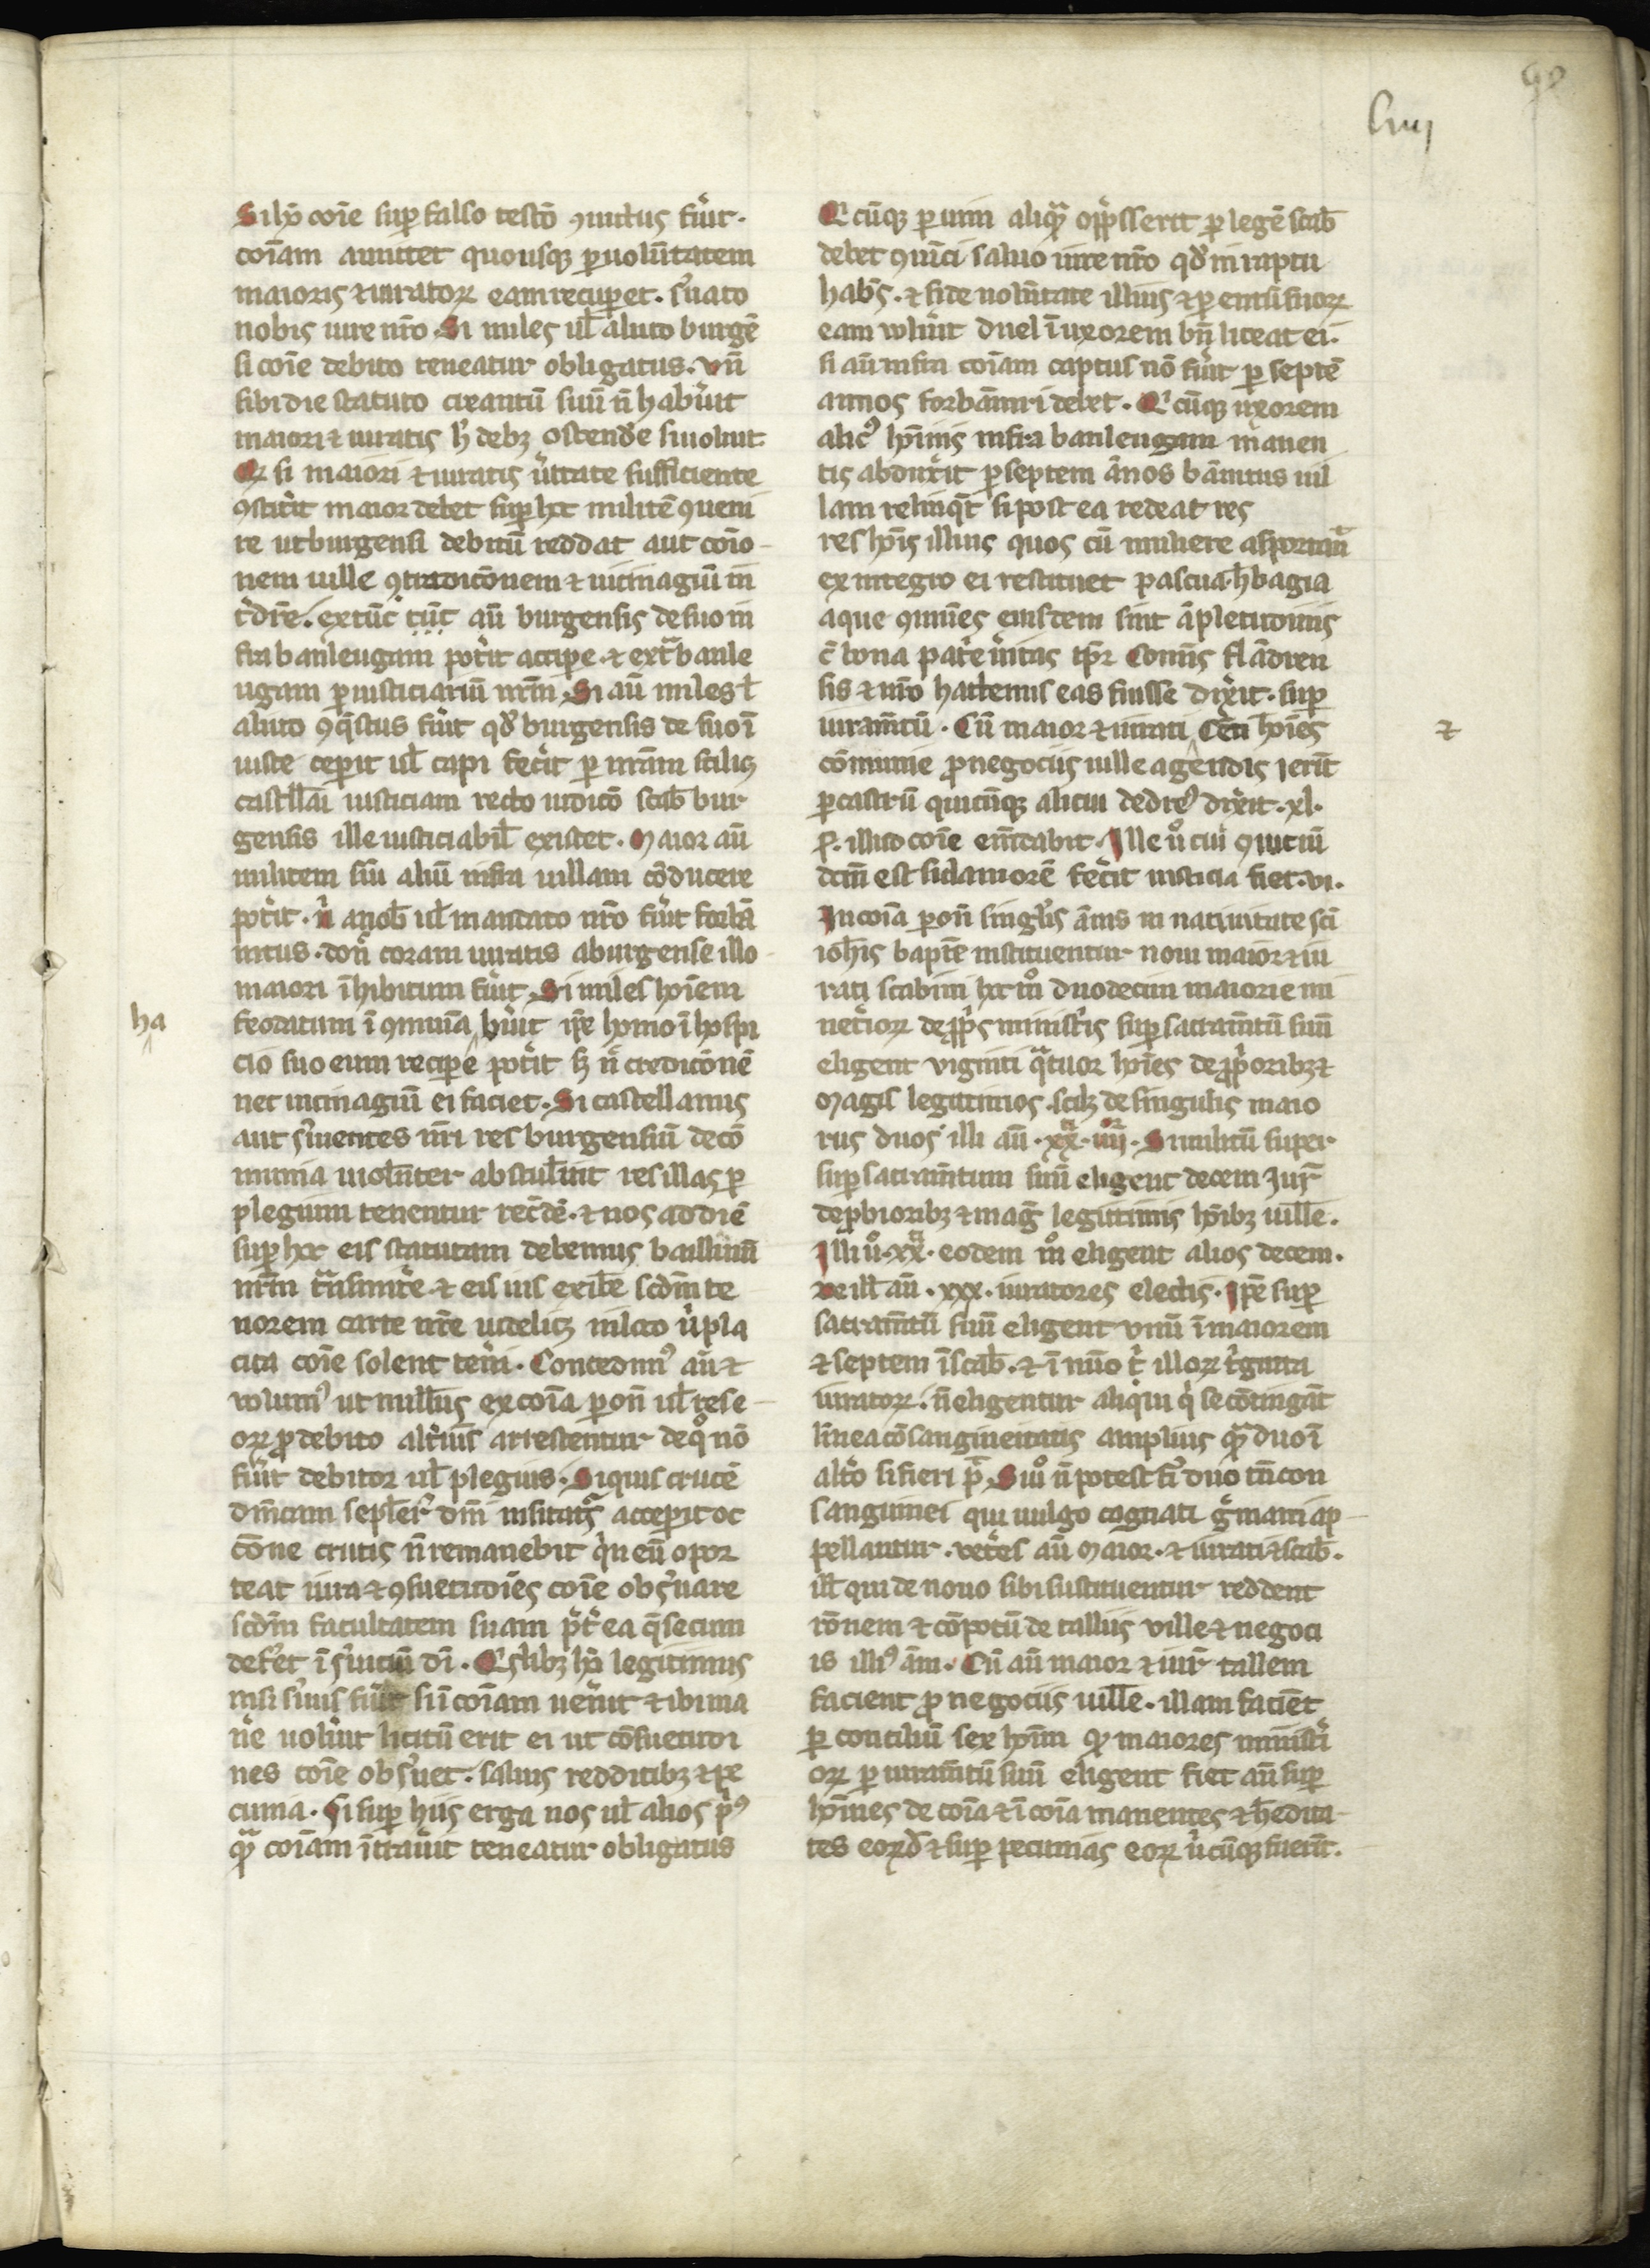 90
lviij
Si hō coīe sup falso testō ꝯuictus fuīt.
coīam amittet quousq; p uolūtatem
maioris ⁊ iuratoꝝ eam recupet. s'uato
nobis iure nr̄o. Si miles ul' alius to burgē
si coīe debito teneatur obligatus. vn̄
sibi die statuto creantū suū n̄ habu'it
maiori ⁊ iuratis h' deb; ostende si uoluit.
Et si maiori ⁊ iuratis u'itate sufficiente
ꝯstitit maior debet sup hoc militē ꝯueni
re ut burgensi debitū reddat aut cōio
nem uille ꝯtradicōnem ⁊ uicinagiū in
t'dr̄e. ex tūc tūc aū burgensis de suo in
fra banleugam pot'it accipe. ⁊ ext̄ banle
ugam p iusticiariū nr̄m. Si aū miles t'
ꝯq̄stus fuīt qd' burgensis de suo ī
iuste ceperit ul' capi fec'it p nr̄am scilic;
castll'ai iusticiam recto iudicō scab' bur
gensis ille iusticiabil' existet. Maior aū
militem siū aliū infra uillam cōducere
pot'it. n' a nob' ul' mandato nr̄o fuīt forbā
nitus. don' coram iuratis a burgense illo
maiori īhibitum fuīt. Si miles hōiem
ha
feodatum ī ꝯmunīa bu'it ip̄e hōmo ī hospi
cio suo eum recipe pot'it s; n' credicōnē
nec uicinagiū ei faciet. Si castellanus
aut s'uientes nr̄i res burgensiū de cō
munia uiolēter abstul'int res illas p
plegium tenentur rec̄dē. ⁊ nos ad diē
sup hoc eis statutum debemus bailliuū
nr̄m t̄nsmitt'e ⁊ eis ius exibē scdm te
norem carte nr̄e uidelic; in loco u' pla
cita coīe solent ten'i. Concedim' aū ⁊
volum' ut nullus ex coīa p on̄ ul' rese
oꝝ p debito alt'ius arrestentur de q° nō
fuīt debitor ul' plegius. Si quis crucē
dn̄icam sepl'cr' dn̄i uisitat's acceperit oc
cōne crucis n̄ remanebit q'n eū opor
teat iura ⁊ ꝯsuetudīes coīe obs'uare
scdm facultatem suam p̄t' ea q̄ secum
defet ī s'uiciū dī. Q'slib; hō legitimus
nisi s'uus fuīt si ī coīam uen'it ⁊ ibi ma
n'e uolu'it licitū erit ei ut cōsuetudi
nes coīe obs'uet. saluis redditib; ⁊ pe
cunia. si sup hiis erga nos ul' alios p'
q̄ coīam ītrau'it teneatur obligatus
Q'cūq; p uim aliq̄ opp̄sserit p legē scab'
debet ꝯuīci saluo iure nr̄o qd' in raptu
habēs. ⁊ si de uolūtate illius ⁊ pentū suoꝝ
eam uolu'it ducē ī uxorem bn̄ liceat ei.
si aū infra coīam captus nō fuīt p septē
annos forbāniri debet. Q'cūq; uxorem
alic' hōinis infra banleugam manen
tis abdux'it p septem ānos bānitus uil
lam relinq̄t si postea redeat res
res hōis illius quos cū muliere asportau'
ex integro ei restituet pascua. h'bagia
aque ꝯmunes eiusdem sint āpletudinis
c̄ bona pat'e nitas tp̄r Comitis flādren
sis ⁊ nr̄o hactenus eas fuisse dix'it. sup
iuramētū. Cū maior ⁊ iurati ⁊ Cet'i hōies
cōmunie p negociis uille agendis ierīt
p castrū quicūq; alicui dedec' dix'it. xl.
s'. illud coīe emēdabit. Ille u° cui ꝯuiciū
dcm̄ est si clamorē fec'it iusticia fiet. vi.
In coīa p on̄ singl'is ānis in natiuitate sci
iohīs bapte instituentur noui maior ⁊ iu
rati scabini hoc m° duodecim maiorie mi
net'ioꝝ de pp's minist'is sup sacramētū suū
eligent viginti q̄tuor hōies de pp'oribz ⁊
Magis legitimos. scil; de singulis maio
rus duos illi aū. xx. iiij. Similitū super
sup sacramētum suū eligent decem Jur'
de p'bioribz ⁊ mag' legitimis hōibz uille.
Illi u°. xx. eodem m° eligent alios decem.
De ill' aū. xxx. iuratores electis. Ip̄e sup
sacramētū suū eligent vnū ī maiorem
⁊ septem ī scab'. ⁊ ī nūo t' illoꝝ t'ginta
iuratoꝝ. n̄ eligentur aliq̄ui q' se cōtingāt
linea cōsanguinitatis amplius q̄ duo ī
alt'o si fieri p̄. Si u° n̄ potest fi' duo tn̄ con
sanguinei qui uulgo cognati g'mani ap
pellantur. vet'es aū Maior. ⁊ iurati ⁊ scab'.
ill' qui de nouo sibi sustituentur reddent
rōnem ⁊ cōpotū de talliis ville ⁊ negoci
is illi' āni. Cū aū maior ⁊ iur' tallem
facient p negociis uille. illam faciēt
p conciliū sex hōim q̄s maiores minist'i
oꝝ p iuramētū suū eligent fiet aū sup
hōines de coīa ⁊ ī coīa manentes ⁊ h'edita
tes eoꝝd' ⁊ sup pecunias eoꝝ u'cūq; fuerīt.
⁊